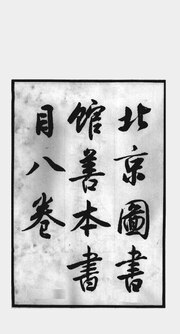 北京圖書
馆善本書
目八卷